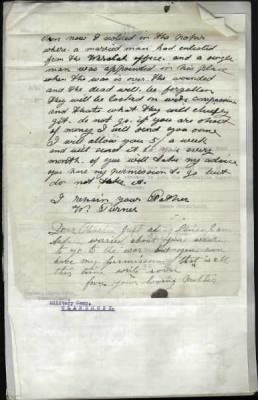 now I noticed in the papers
where a married man had enlisted
from the office. and a single
man was appointed in his place
when the war is over. The wounded
and the dead will be forgotten
They will be looked on with compassion
and thats what they will chiefly
get. do not go. if you are short
of money I will send you some
I will allow you 5/ a week
and will send it to you every
month. if you will take my advice
you have my permission to go but
do not take it.
I remain your Father
W. Turner
Dear just a
worried about you
to go to the war but you can
have my permission that is all
this time write soon
from your loving Mother
Military Camp,